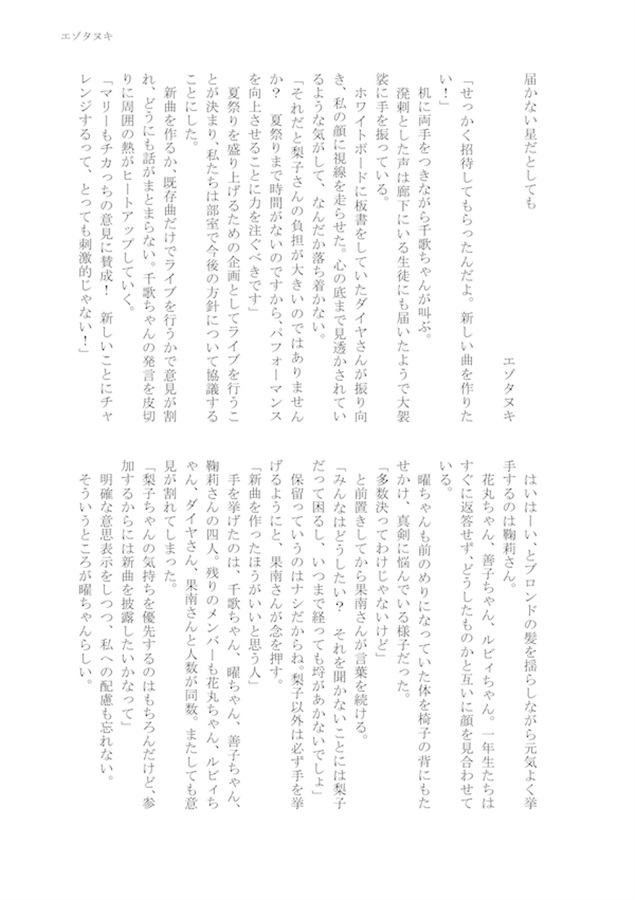 エゾタヌキ
届かない星だとしても
エゾタヌキ
「せっかく招待してもらったんだよ。新しい曲を作りた
い！」
机に両手をつきながら千歌ちゃんが叫ぶ。
溌剌とした声は廊下にいる生徒にも届いたようで大袈
裟に手を振っている。
ホワイトボードに板書をしていたダイヤさんが振り向
き、私の顔に視線を走らせた。心の底まで見透かされてい
るような気がして、なんだか落ち着かない。
「それだと梨子さんの負担が大きいのではありません
か？　夏祭りまで時間がないのですから、パフォーマンス
を向上させることに力を注ぐべきです」
夏祭りを盛り上げるための企画としてライブを行うこ
とが決まり、私たちは部室で今後の方針について協議する
ことにした。
新曲を作るか、既存曲だけでライブを行うかで意見が割
れ、どうにも話がまとまらない。千歌ちゃんの発言を皮切
りに周囲の熱がヒートアップしていく。
「マリーもチカっちの意見に賛成！　新しいことにチャ
レンジするって、とっても刺激的じゃない！」
はいはーい、とブロンドの髪を揺らしながら元気よく挙
手するのは鞠莉さん。
花丸ちゃん、善子ちゃん、ルビィちゃん。一年生たちは
すぐに返答せず、どうしたものかと互いに顔を見合わせて
いる。
曜ちゃんも前のめりになっていた体を椅子の背にもた
せかけ、真剣に悩んでいる様子だった。
「多数決ってわけじゃないけど」
と前置きしてから果南さんが言葉を続ける。
「みんなはどうしたい？　それを聞かないことには梨子
だって困るし、いつまで経っても埒があかないでしょ」
保留っていうのはナシだからね。梨子以外は必ず手を挙
げるようにと、果南さんが念を押す。
「新曲を作ったほうがいいと思う人」
手を挙げたのは、千歌ちゃん、曜ちゃん、善子ちゃん、
鞠莉さんの四人。残りのメンバーも花丸ちゃん、ルビィち
ゃん、ダイヤさん、果南さんと人数が同数。またしても意
見が割れてしまった。
「梨子ちゃんの気持ちを優先するのはもちろんだけど、参
加するからには新曲を披露したいかなって」
明確な意思表示をしつつ、私への配慮も忘れない。
そういうところが曜ちゃんらしい。